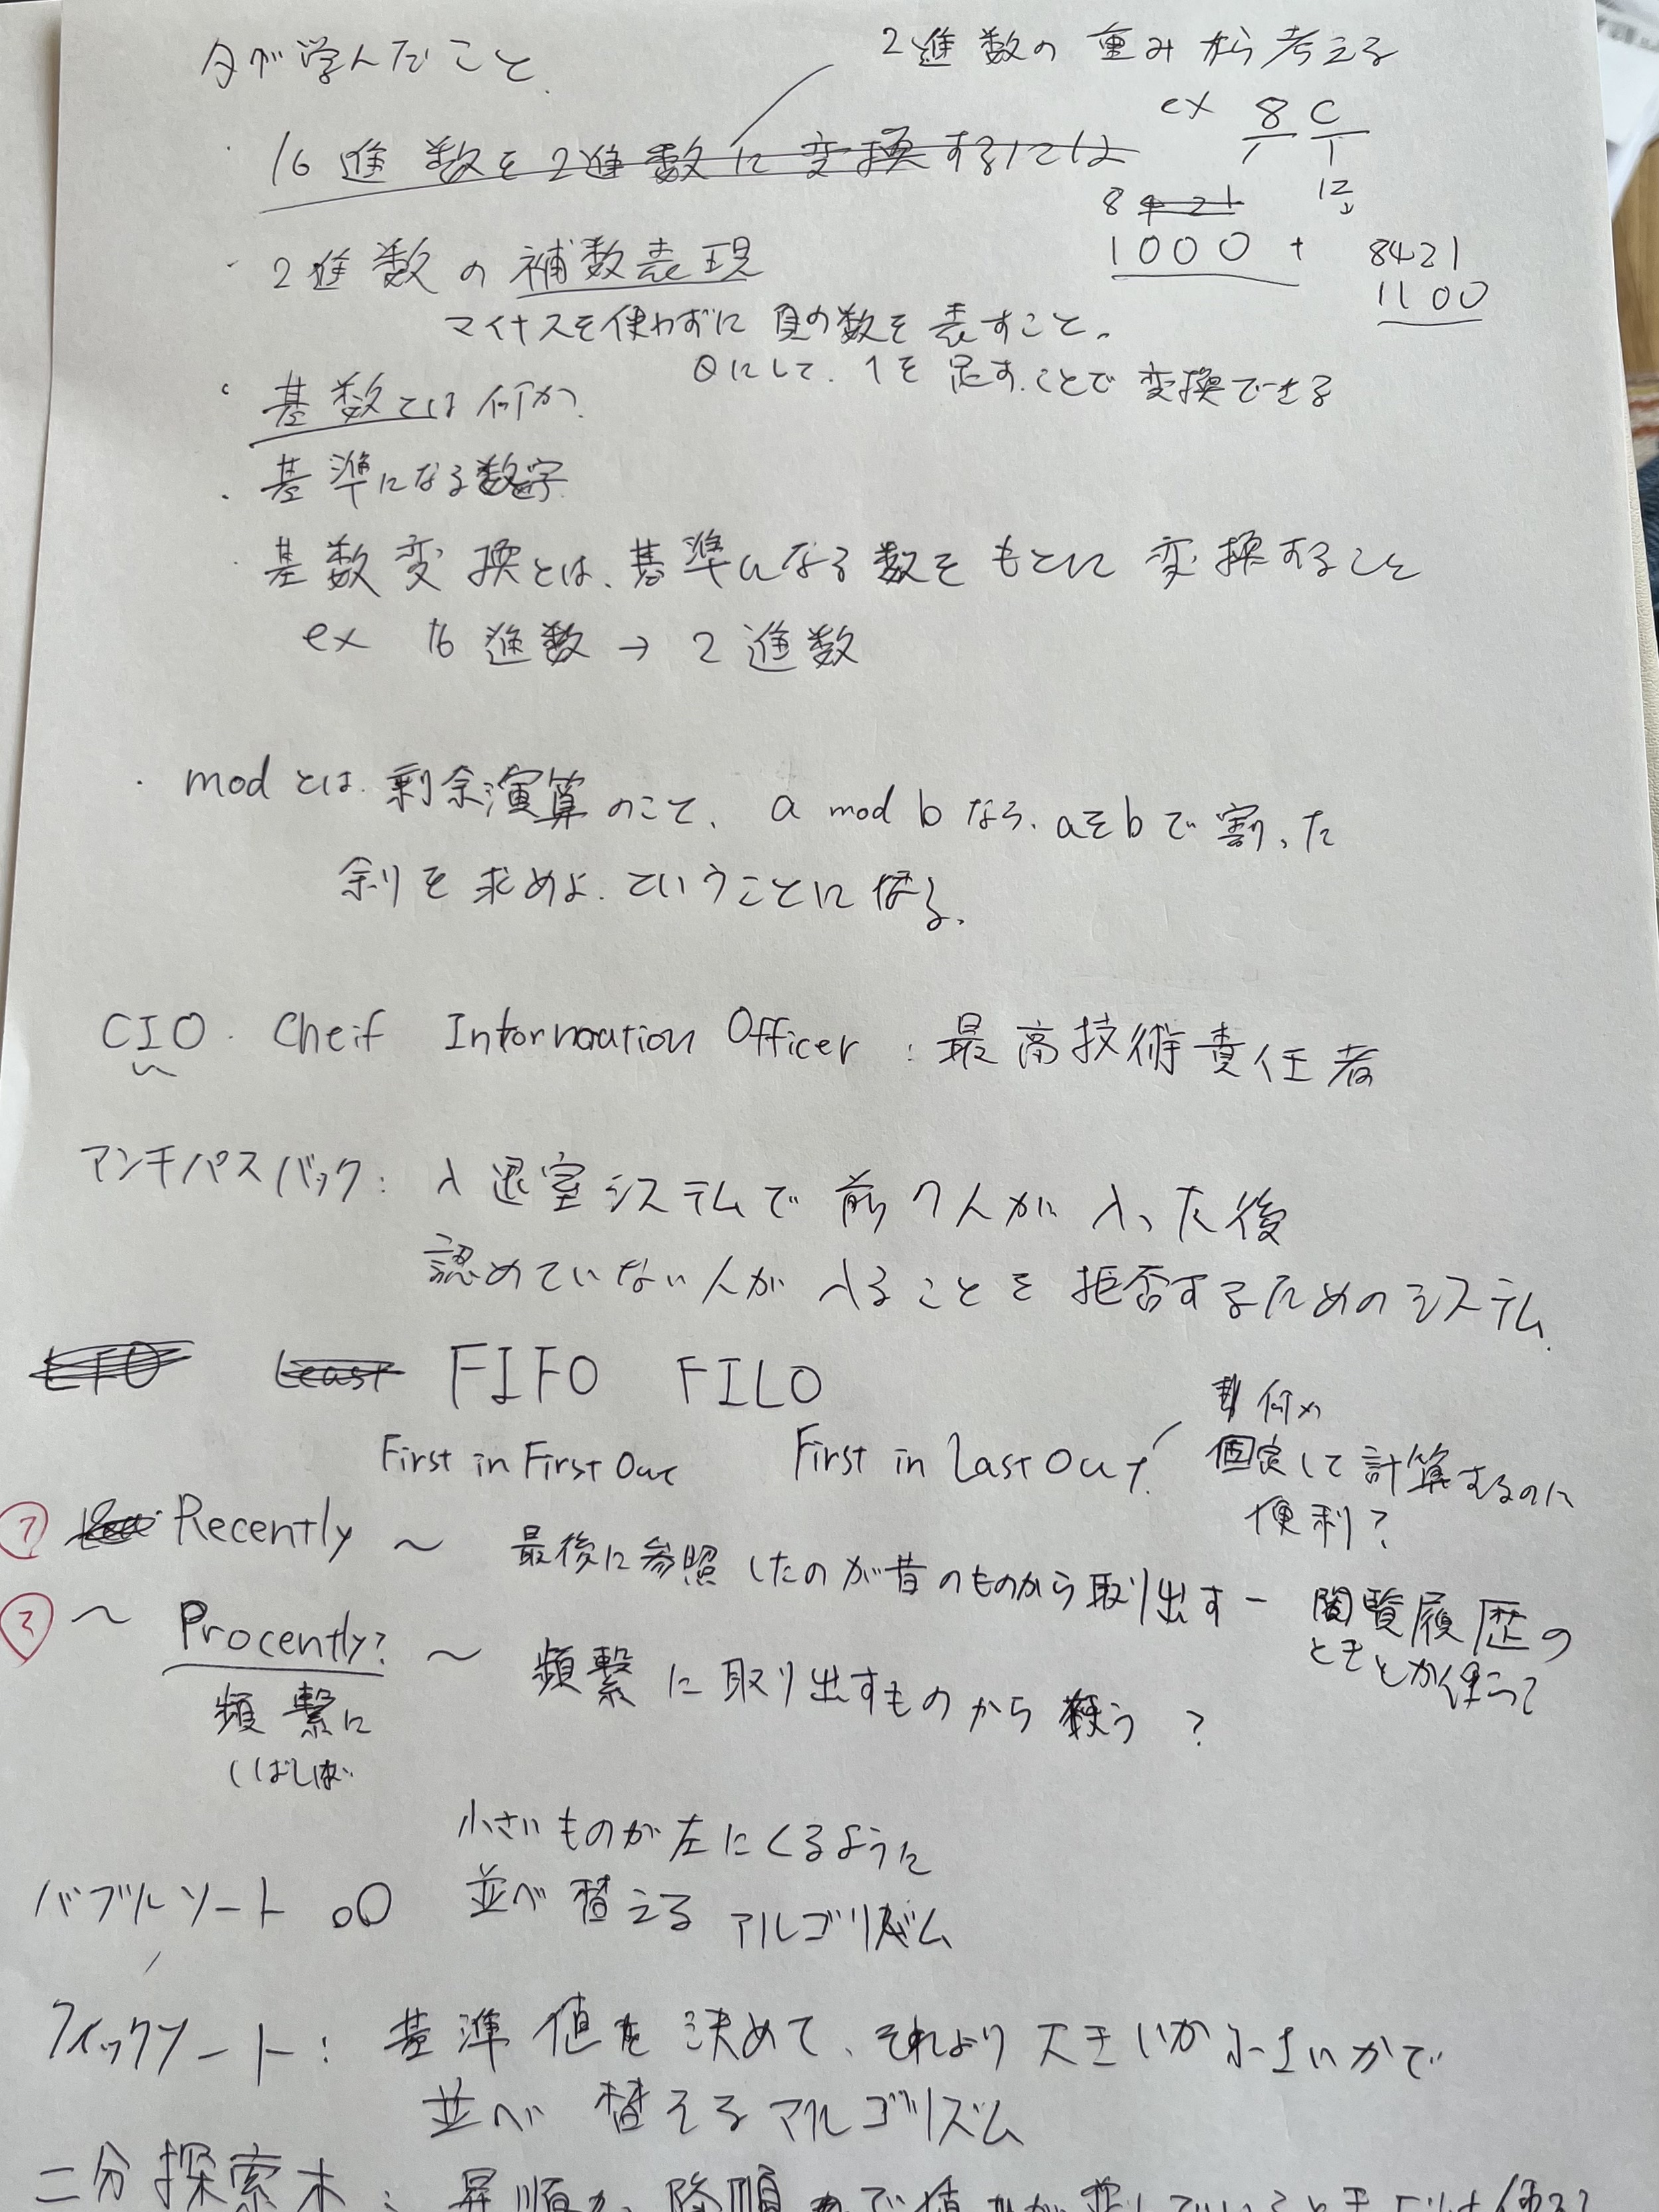 夕が学んだこと
2進数の重みから考える
ex 8 C
16進数を2進数に変換するには
8 4 2 1 12
1000 + 8421
1100
・2進数の補数表現
マイナスを使わずに負の数を表すこと。
0にして、1を足すことで変換できる
・基数とは何か
・基準になる数字
・基数変換とは、基準になる数をもとに変換すること
ex 16進数→2進数
・modとは剰余演算のこと、a mod bなら、aをbで割った
余りを求めよ、ということになる。
CIO. Cheif Information Officer : 最高技術責任者
アンチパスバック: 入退室システムで前の人が入った後
認めていない人が入ることを拒否するためのシステム
LFO Least FIFO FILO
First in First Out First in Last Out
何か
固定して計算するのに
便利?
① Recently ～ 最後に参照したのが昔のものから取り出す - 閲覧履歴の
ときとか使って
② ～ Procently? ～ 頻繫に取り出すものから扱う?
頻繫に
しばしば
小さいものが左にくるように
バブルソート 並べ替えるアルゴリズム
クイックソート: 基準値を決めて、それより大きいか小さいかで
並べ替えるアルゴリズム
二分探索木: 昇順か降順かで値が